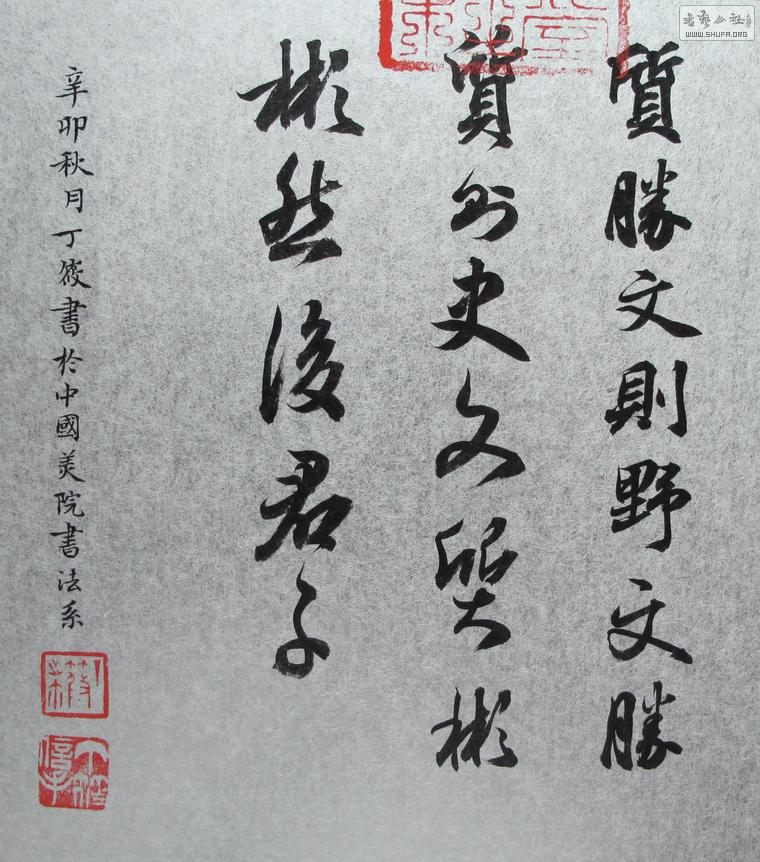 質勝文則野文勝
質則史文質彬
彬然後君子
辛卯秋月丁筱書於中國美院書法系
書艺公社
WWW.SHUFA.ORG